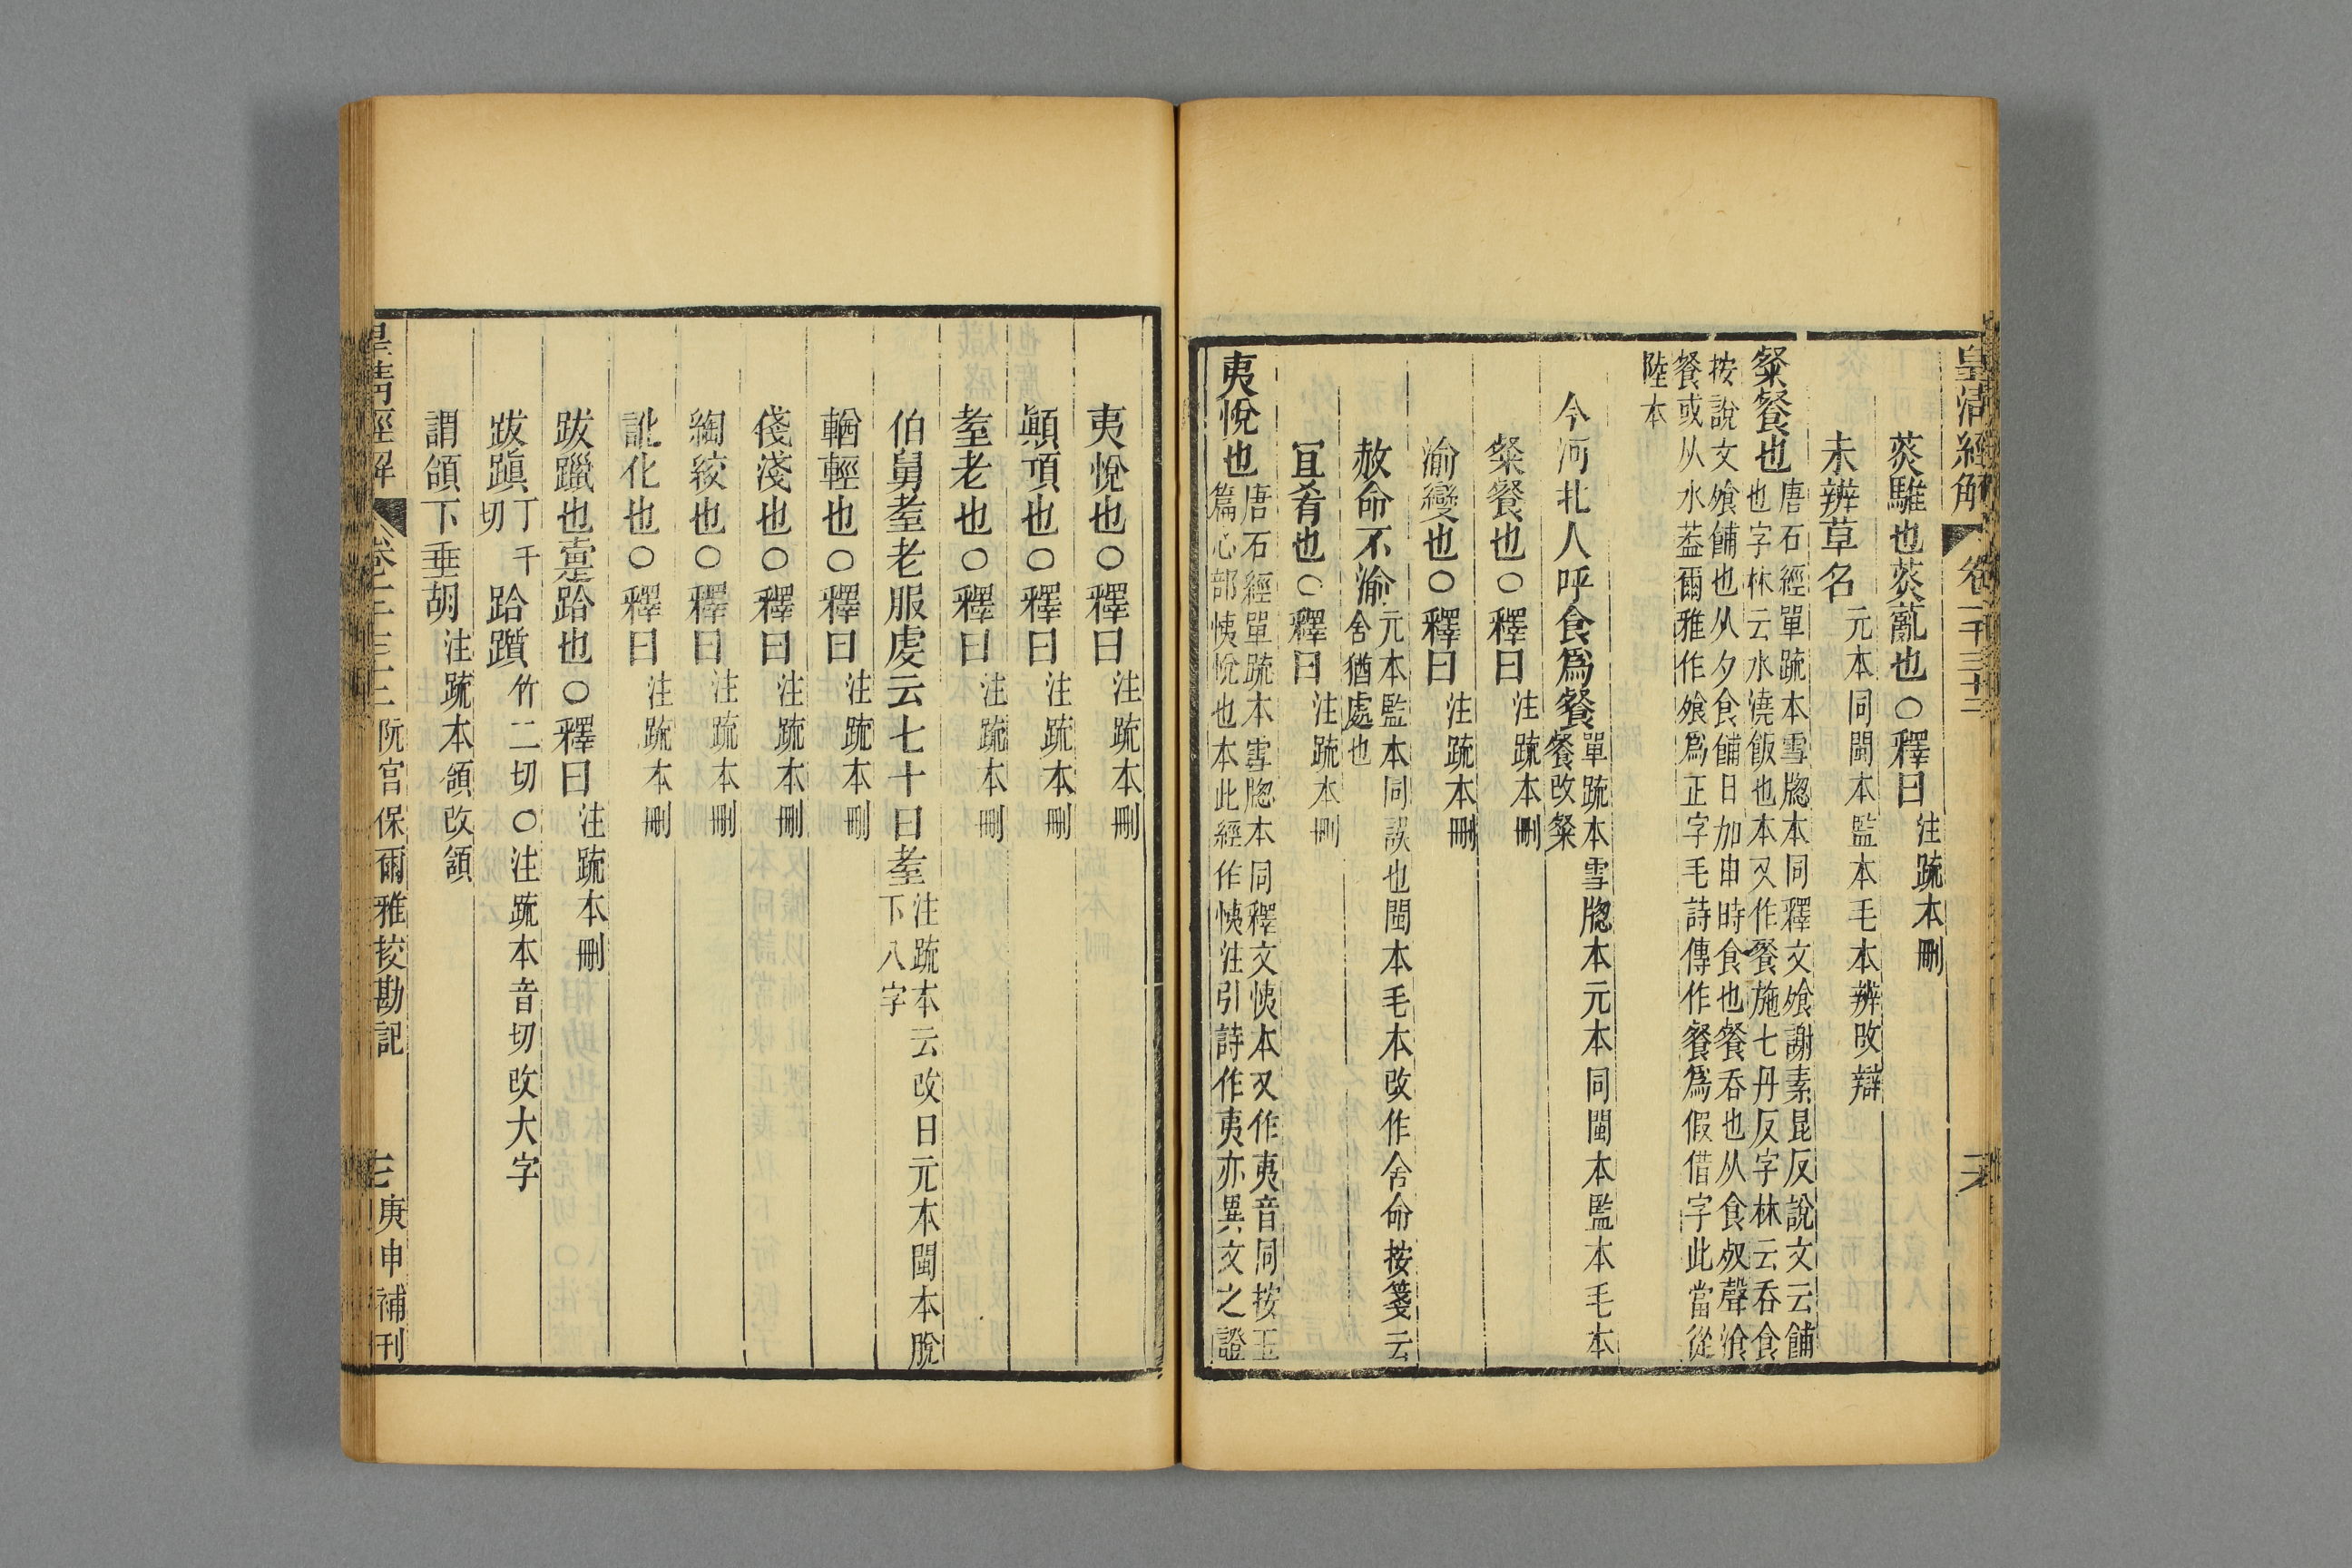 皇清經解 卷一千三十二
菼騅也菼薍也○釋曰注疏本刪
未辨草名元本同閩本監本毛本辨改辯
粲餐也唐石經單疏本雪牕本同釋文飧謝素昆反說文云餔
也字林云水澆飯也本又作餐施七丹反字林云吞食
按說文飧餔也从夕食餔日加申時食也餐吞也从食𣦼聲湌
餐或从水葢爾雅作飧爲正字毛詩傳作餐爲假借字此當從
陸本
今河北人呼食爲餐單疏本雪牕本元本同閩本監本毛本
餐改粲
粲餐也○釋曰注疏本刪
渝變也○釋曰注疏本刪
赦命不渝元本監本同誤也閩本毛本改作舍命按箋云
舍猶處也
宜肴也○釋曰注疏本刪
夷悅也唐石經單疏本雪牕本同釋文恞本又作夷音同按玉
篇心部恞悅也本此經作恞注引詩作夷亦異文之證
夷悅也○釋曰注疏本刪
顚頂也○釋曰注疏本刪
耋老也○釋曰注疏本刪
伯舅耋老服虔云七十曰耋注疏本云改曰元本閩本脫
下八字
輶輕也○釋曰注疏本刪
俴淺也○釋曰注疏本刪
綯絞也○釋曰注疏本刪
訛化也○釋曰注疏本刪
跋躐也疐跲也○釋曰注疏本刪
跋躓丁千
切
跲躓竹二切○注疏本音切改大字
謂頷下垂胡注疏本頷改領
皇清經解 卷一千三十二 阮宮保爾雅挍勘記 庚申補刊